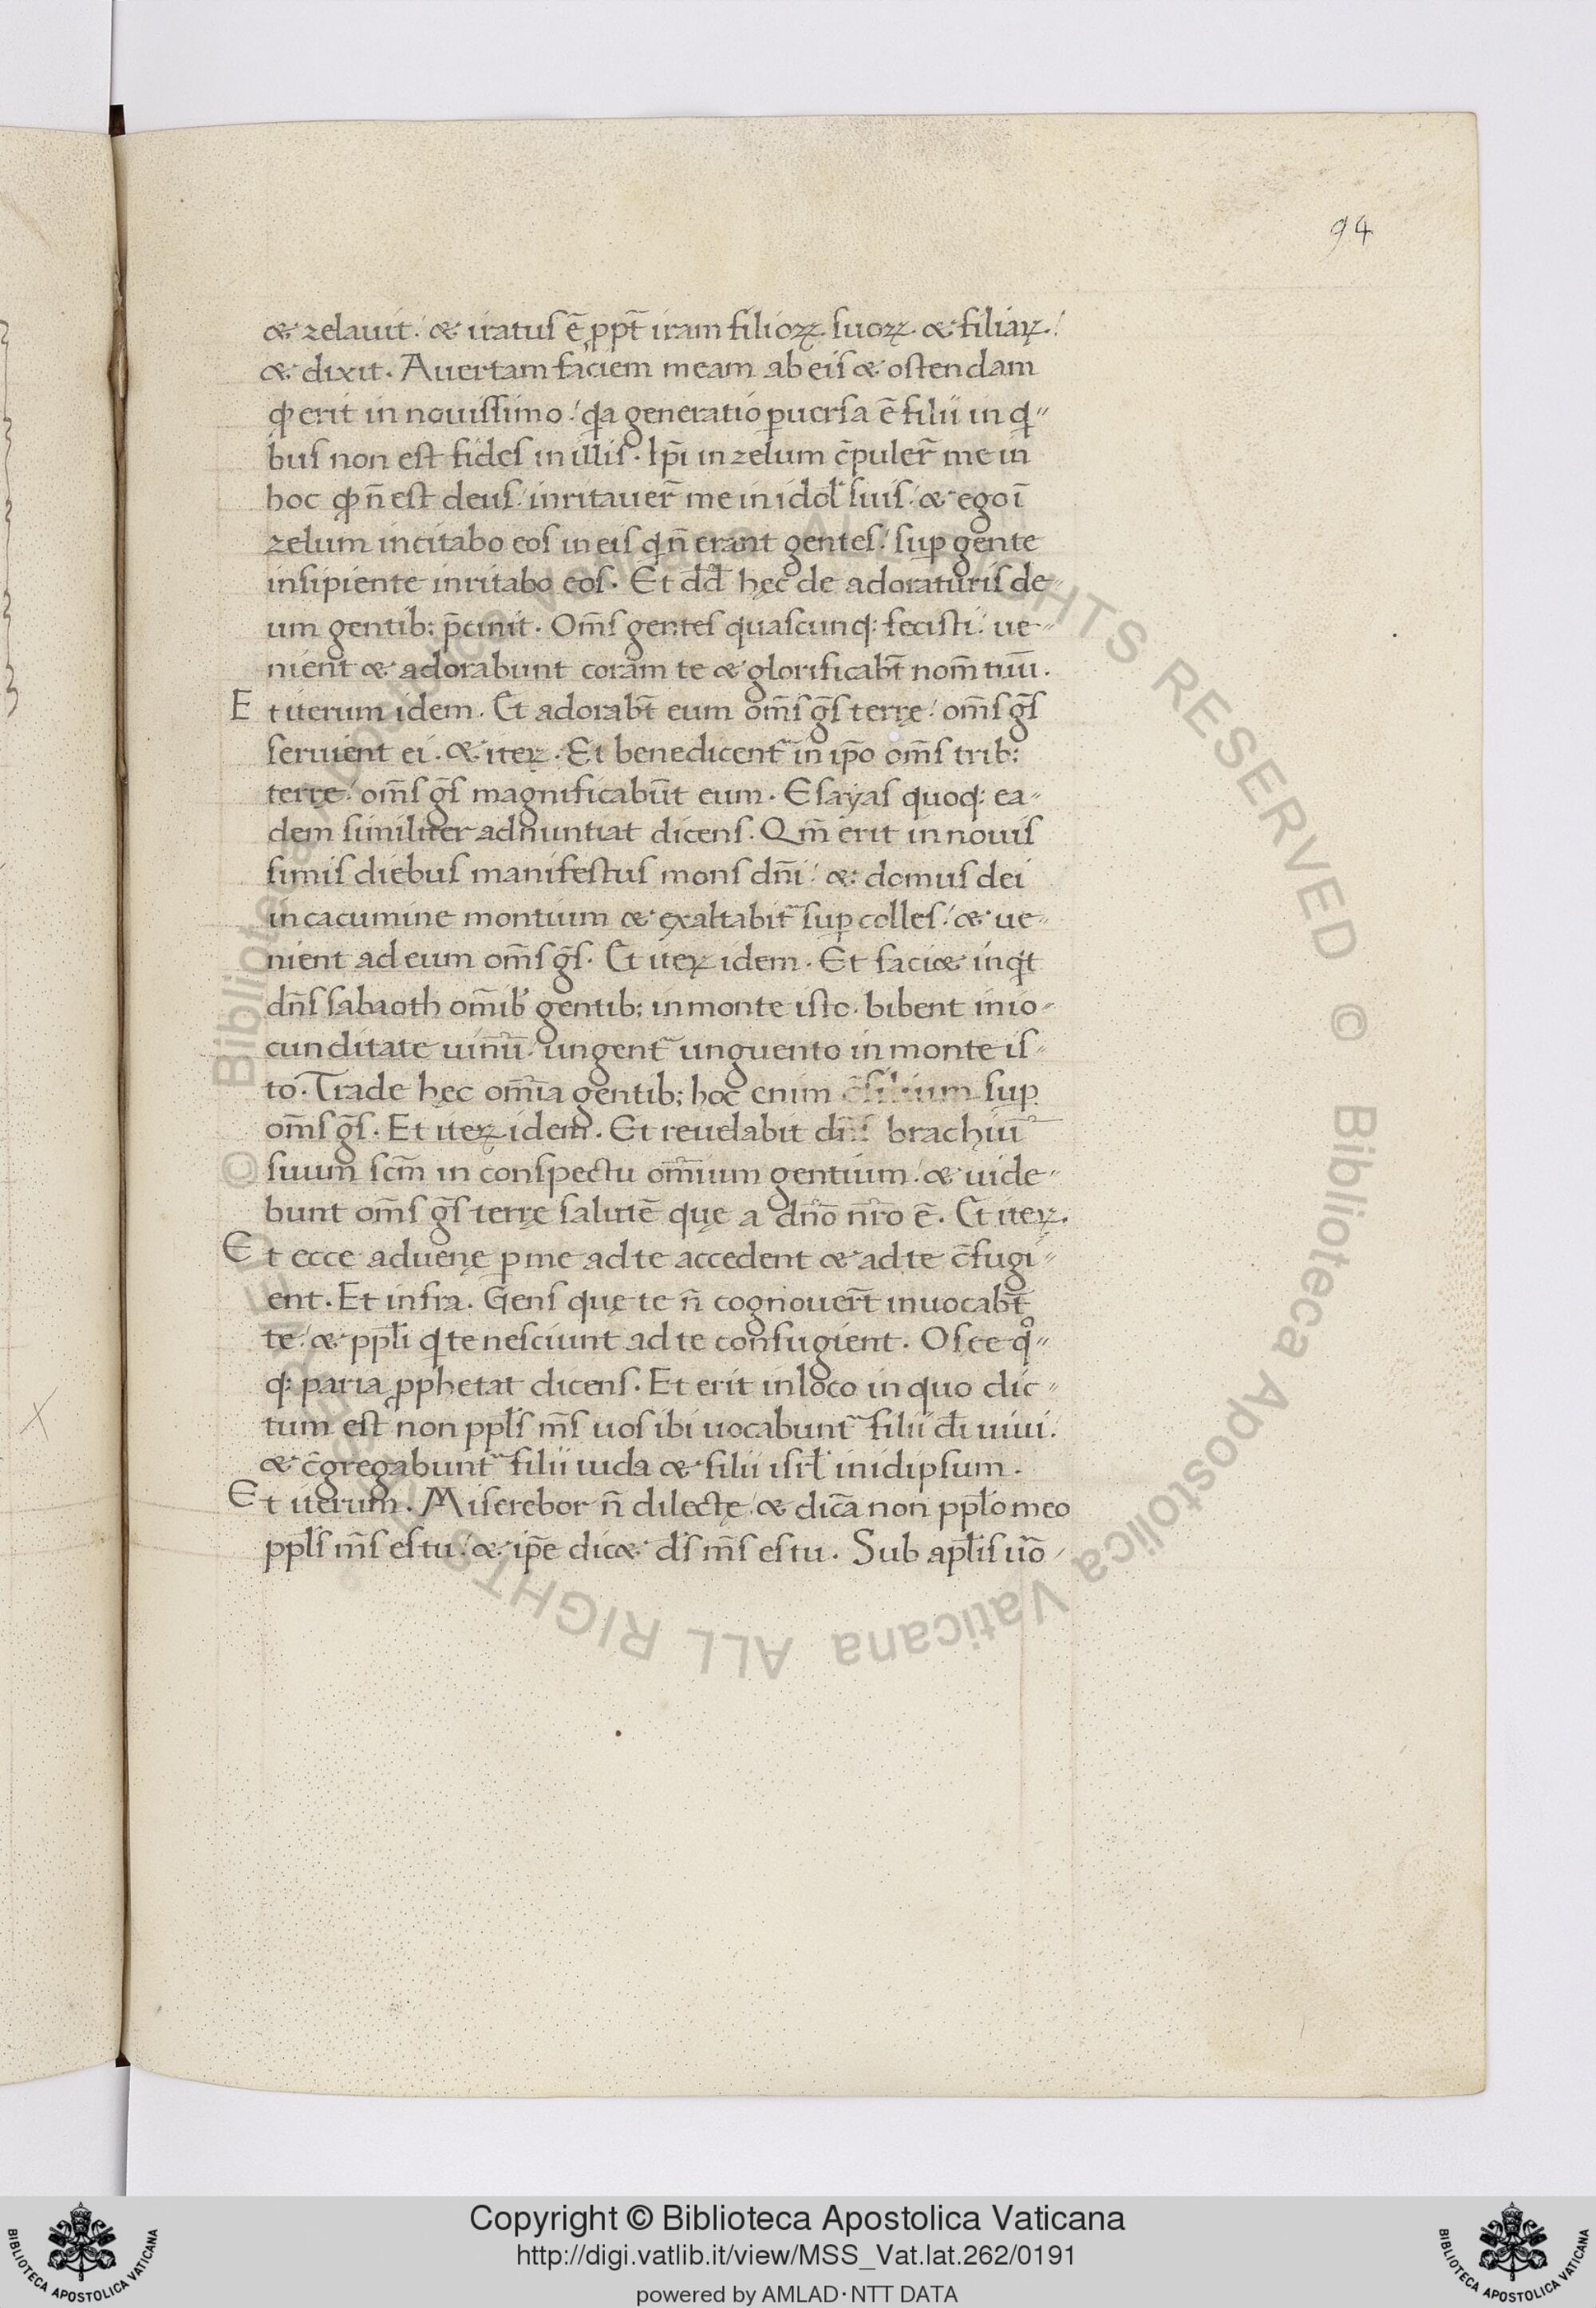 94
& zelauit / & iratus ē ꝓpt̄ iram filioꝝ suoꝝ & filiaꝝ /
& dixit . Auertam faciem meam ab eis & ostendam
qđ erit in nouissimo / qa generatio ꝑuersa ē filii in q-
bus non est fides in illis . Ip̄i in zelum c̄puler̄ me in
hoc qđ n̄ est deus / inritauer̄ me in idol' suis / & ego ī
zelum incitabo eos in eis q n̄ erant gentes / suꝑ gente
insipiente inritabo eos . Et dd̄ hęc de adoraturis de-
um gentib; p̄cinit . Om̄s gentes quascunq; fecisti / ue-
nient & adorabunt coram te & glorificabt̄ nom̄ tuū .
Et iterum idem . Et adorabt̄ eum om̄s ḡs terrę / om̄s ḡs
seruient ei . & iteꝝ . Et benedicent' in ip̄o om̄s trib;
terrę / om̄s ḡs magnificabūt eum . Esayas quoq; ea-
dem similiter adnuntiat dicens . Qm̄ erit in nouis
simis diebus manifestus mons dn̄i / & domus dei
in cacumine montium & exaltabit' suꝑ colles / & ue-
nient ad eum om̄s ḡs . Et iteꝝ idem . Et faci& inqt
dn̄s sabaoth om̄ib' gentib; in monte isto . bibent in io-
cunditate uinū / ungent' unguento in monte is-
to . Trade hęc om̄ia gentib; hoc enim c̄silium suꝑ
om̄s ḡs . Et iteꝝ idem . Et reuelabit dn̄s brachiū
suum sc̄m in conspectu om̄ium gentium / & uide-
bunt om̄s ḡs terrę salutē quę a dn̄o nr̄o ē . Et iteꝝ .
Et ecce aduenę ꝑ me ad te accedent & ad te c̄fugi-
ent . Et infra . Gens quę te n̄ cognouert̄ inuocabt̄
te / & ppl̄i q te nesciunt ad te confugient . Osee qº-
q; paria ꝓphetat dicens . Et erit in loco in quo dic-
tum est non ppl̄s m̄s uos ibi uocabunt' filii dī uiui .
& c̄gregabunt' filii iuda & filii isrl̄ in idipsum .
Et iterum . Miserebor n̄ dilectę / & dicā non ppl̄o meo
ppl̄s m̄s es tu / & ip̄e dic& ds̄ m̄s es tu . Sub apl̄is ūo
Copyright © Biblioteca Apostolica Vaticana
http://digi.vatlib.it/view/MSS_Vat.lat.262/0191
powered by AMLAD·NTT DATA
BIBLIOTECA APOSTOLICA VATICANA
BIBLIOTECA APOSTOLICA VATICANA
© Biblioteca Apostolica Vaticana ALL RIGHTS RESERVED © Biblioteca Apostolica Vaticana ALL RIGHTS RESERVED